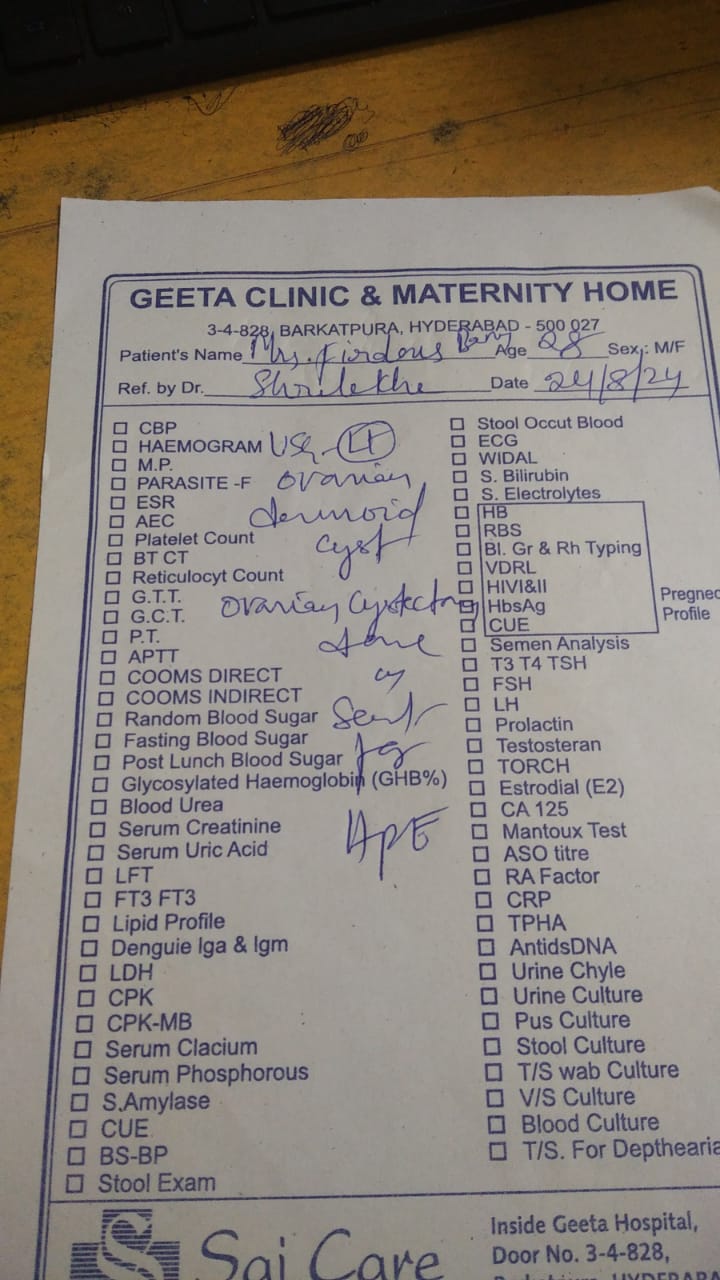 GEETA CLINIC & MATERNITY HOME
3-4-828, BARKATPURA, HYDERABAD - 500 027
Patient's Name Mrs. Firdous Age 28 Sex : M/F
Ref. by Dr. Date 24/8/24
CBP
HAEMOGRAM USG - Lt
M.P.
PARASITE -F ovarian
ESR
AEC dermoid
Platelet Count
BT CT cyst
Reticulocyt Count
G.T.T.
G.C.T. ovarian cystectomy
P.T.
APTT done
COOMS DIRECT
COOMS INDIRECT
Random Blood Sugar Sent
Fasting Blood Sugar
Post Lunch Blood Sugar for
Glycosylated Haemoglobin (GHB%)
Blood Urea
Serum Creatinine HPE
Serum Uric Acid
LFT
FT3 FT3
Lipid Profile
Denguie Iga & Igm
LDH
CPK
CPK-MB
Serum Clacium
Serum Phosphorous
S.Amylase
CUE
BS-BP
Stool Exam
Stool Occut Blood
ECG
WIDAL
S. Bilirubin
S. Electrolytes
HB
RBS
Bl. Gr & Rh Typing
VDRL
HIVI&II
HbsAg
CUE
Pregnec
Profile
Semen Analysis
T3 T4 TSH
FSH
LH
Prolactin
Testosteran
TORCH
Estrodial (E2)
CA 125
Mantoux Test
ASO titre
RA Factor
CRP
TPHA
AntidsDNA
Urine Chyle
Urine Culture
Pus Culture
Stool Culture
T/S wab Culture
V/S Culture
Blood Culture
T/S. For Depthearia
Sai Care
Inside Geeta Hospital,
Door No. 3-4-828,